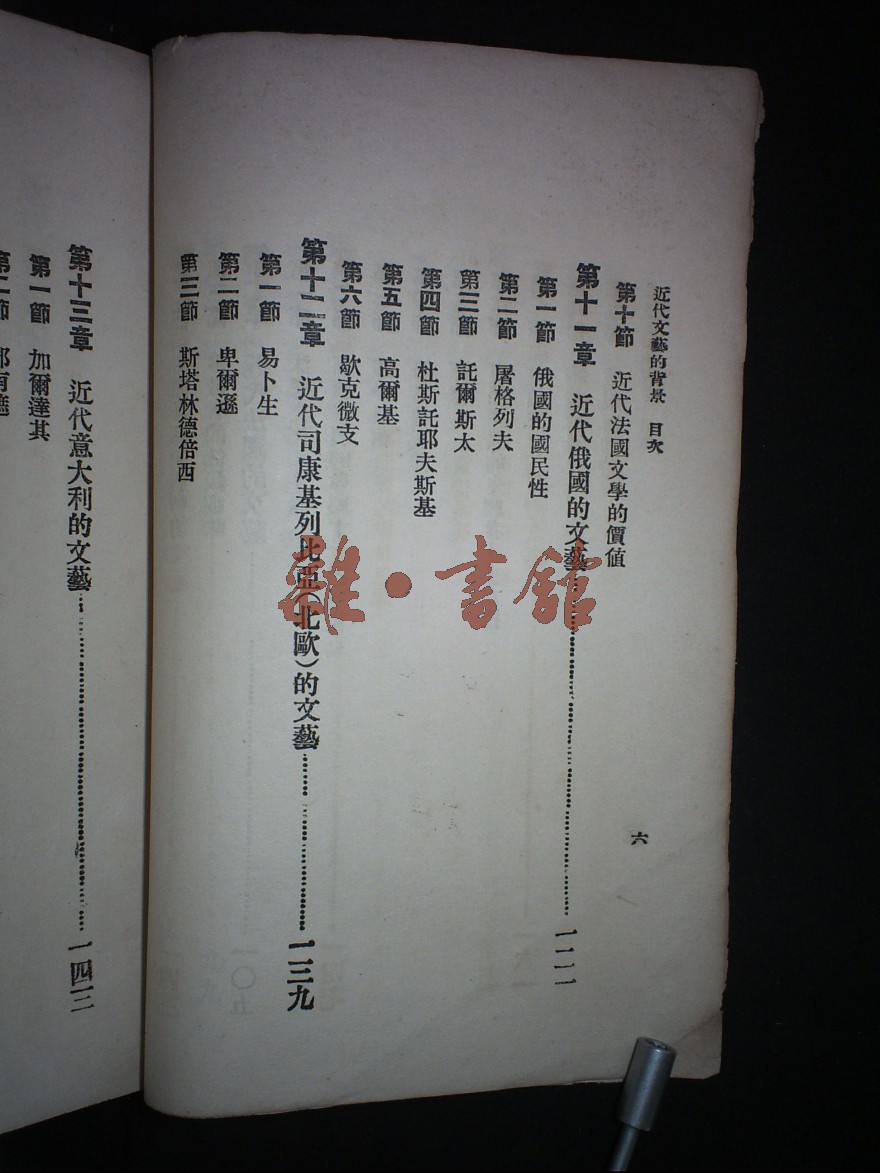 近代文藝的背景　目次
六
第十節　近代法國文學的價值
第十一章　近代俄國的文藝……一一一
第一節　俄國的國民性
第二節　屠格列夫
第三節　託爾斯太
第四節　杜斯託耶夫斯基
第五節　高爾基
第六節　歇克微支
第十二章　近代司康基列比亞（北歐）的文藝……一三九
第一節　易卜生
第二節　卑爾遜
第三節　斯塔林德倍西
第十三章　近代意大利的文藝……一四三
第一節　加爾達其
第二節
雜·書館